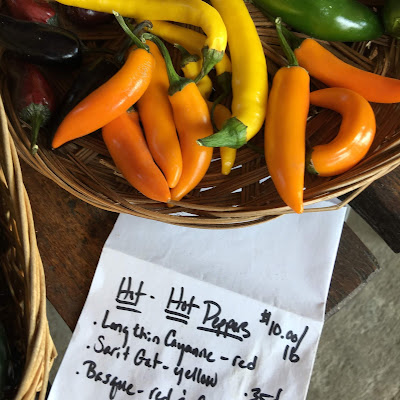 Hot - Hot Peppers $10.00/lb
. Long thin Cayanne - red
. Sarit Gat - yellow
. Basque - red